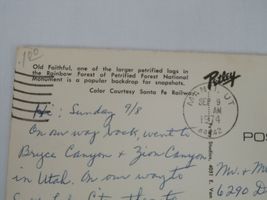 1.00
Old Faithful, one of the larger petrified logs in
the Rainbow Forest of Petrified Forest National
Monument is a popular backdrop for snapshots.
Color Courtesy Santa Fe Railway
Petley
MANTI, UT
SEP 9
AM
1974
84642
Hi: Sunday 9/8
On our way back, went to
Bryce Canyon & Zion Canyon
in Utah. On our way to
POS
Mr. & M
6290 D